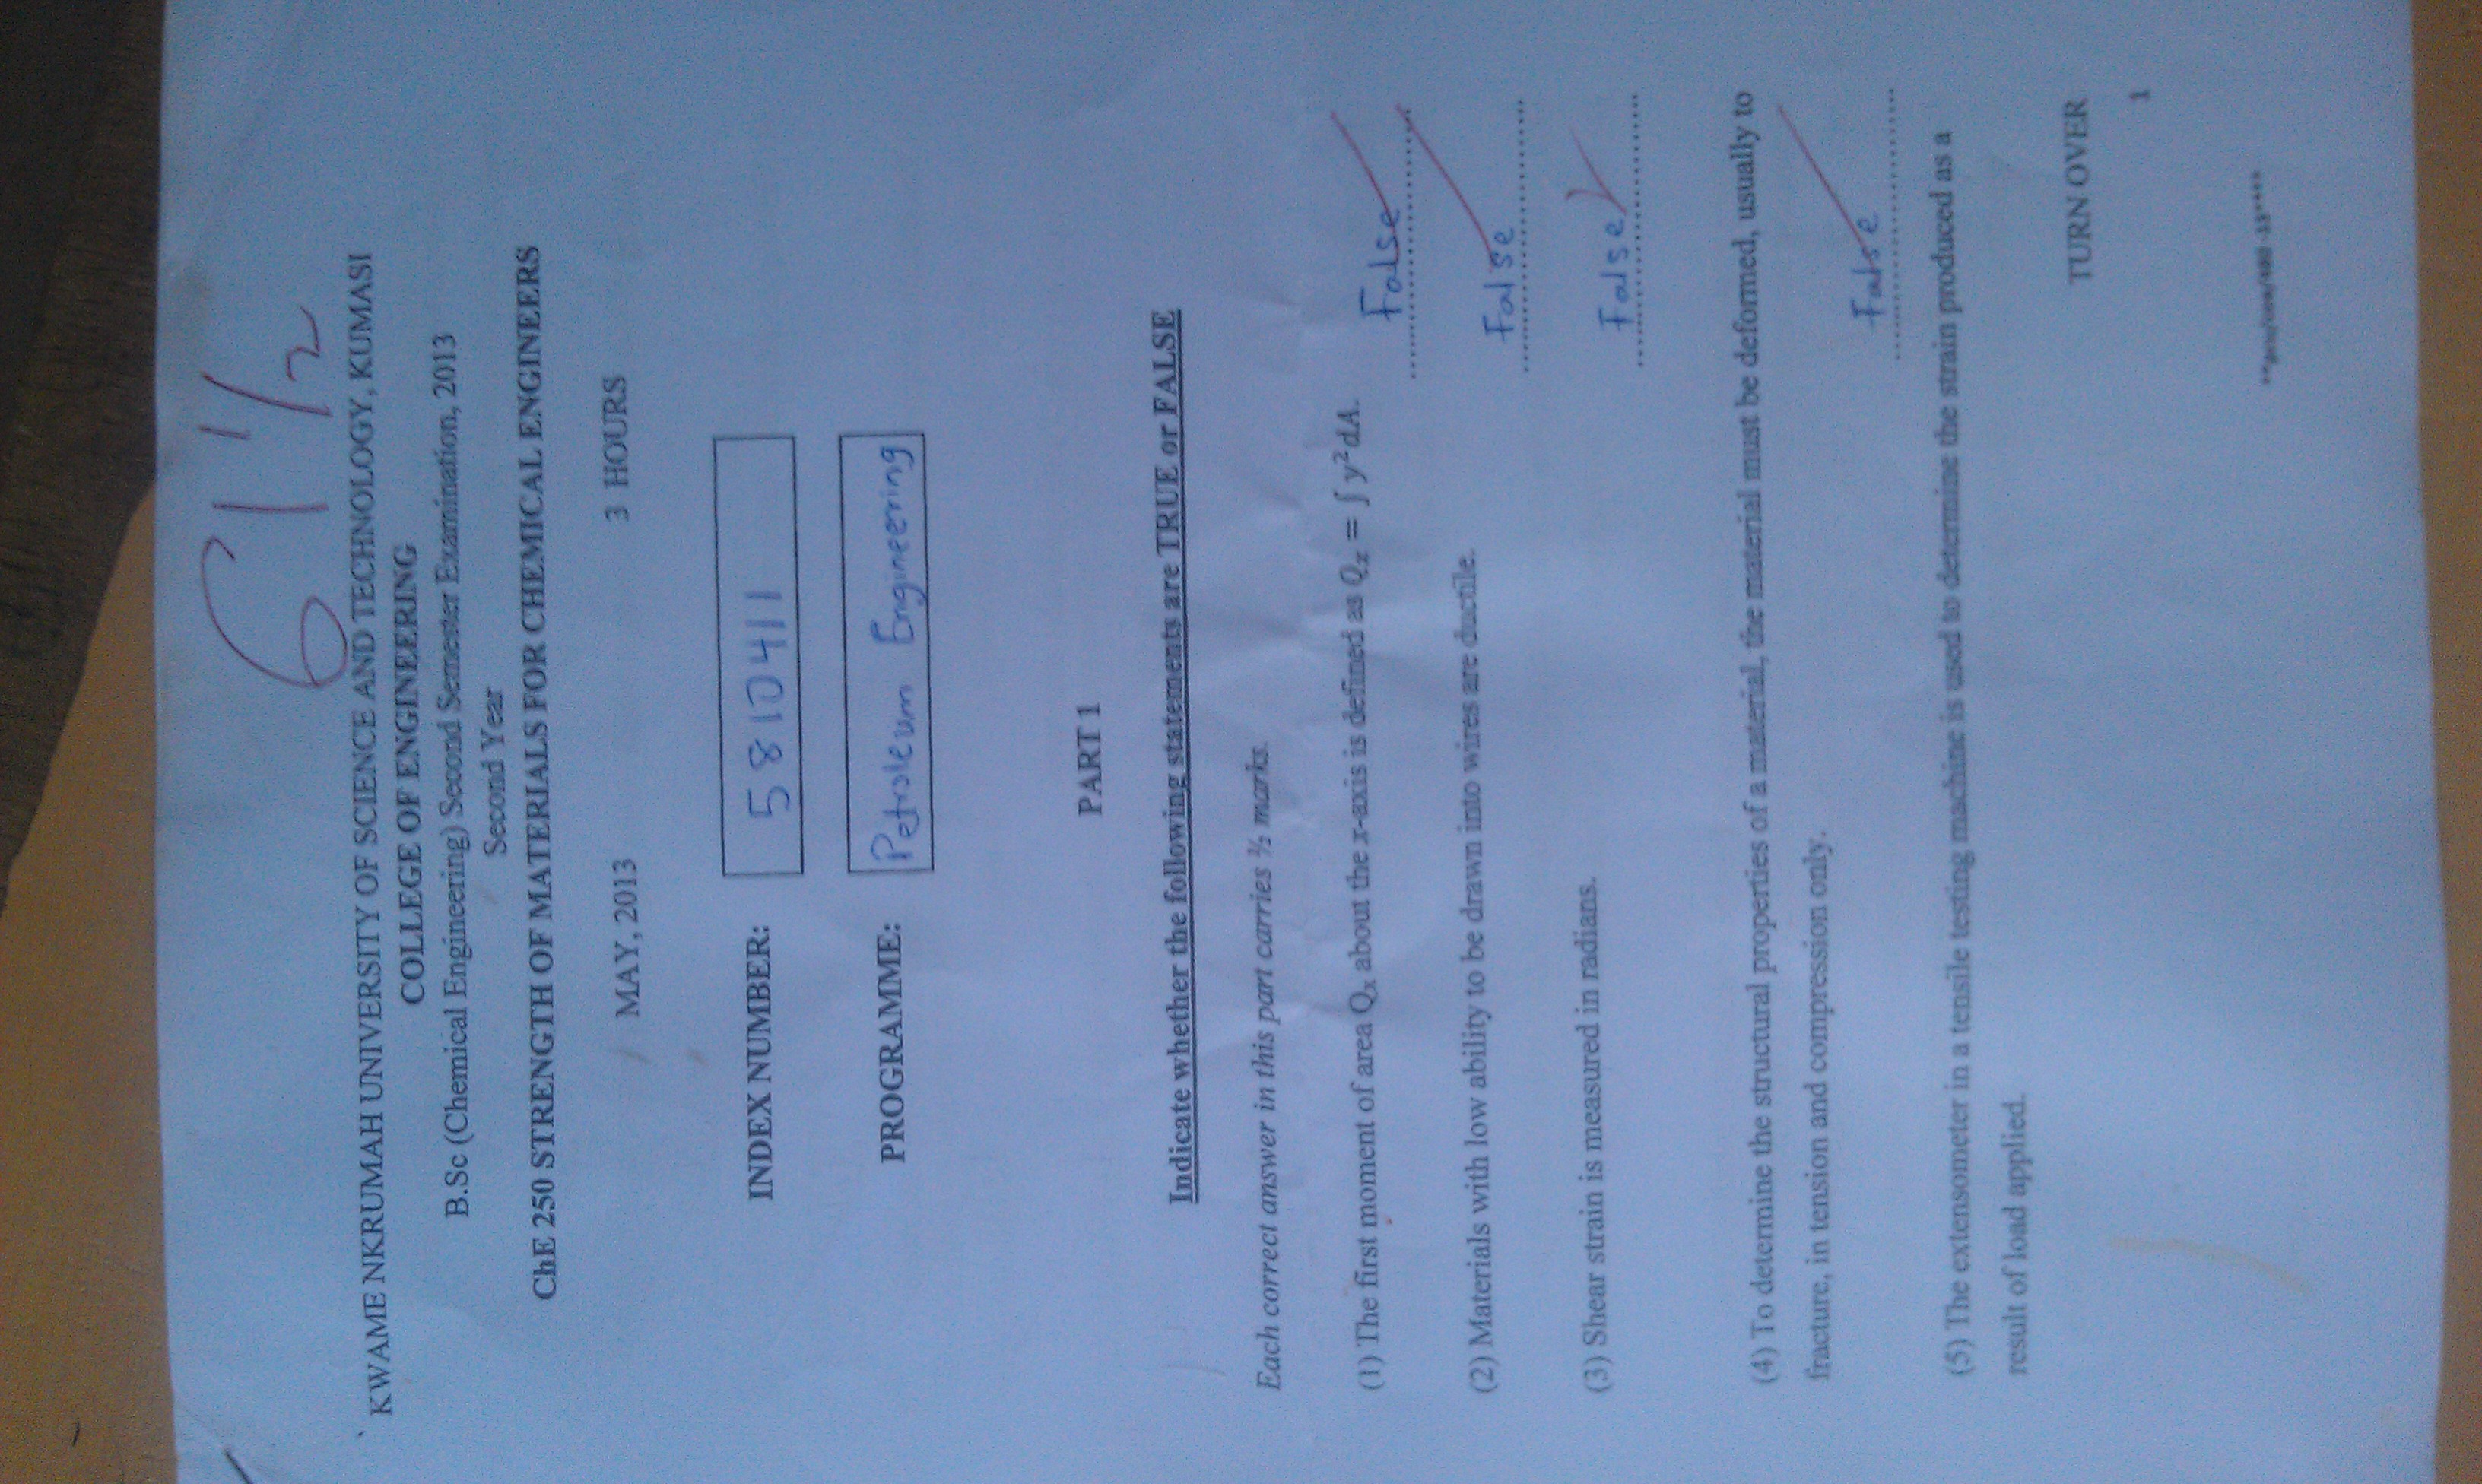 61 1/2
KWAME NKRUMAH UNIVERSITY OF SCIENCE AND TECHNOLOGY, KUMASI
COLLEGE OF ENGINEERING
B.Sc (Chemical Engineering) Second Semester Examination, 2013
Second Year
ChE 250 STRENGTH OF MATERIALS FOR CHEMICAL ENGINEERS
MAY, 2013 3 HOURS
INDEX NUMBER: 5810411
PROGRAMME: Petroleum Engineering
PART 1
Indicate whether the following statements are TRUE or FALSE
Each correct answer in this part carries ½ marks.
(1) The first moment of area Qₓ about the x-axis is defined as Qₓ = ∫ y²dA.
False
(2) Materials with low ability to be drawn into wires are ductile.
False
(3) Shear strain is measured in radians.
False
(4) To determine the structural properties of a material, the material must be deformed, usually to
fracture, in tension and compression only.
False
(5) The extensometer in a tensile testing machine is used to determine the strain produced as a
result of load applied.
TURN OVER
1